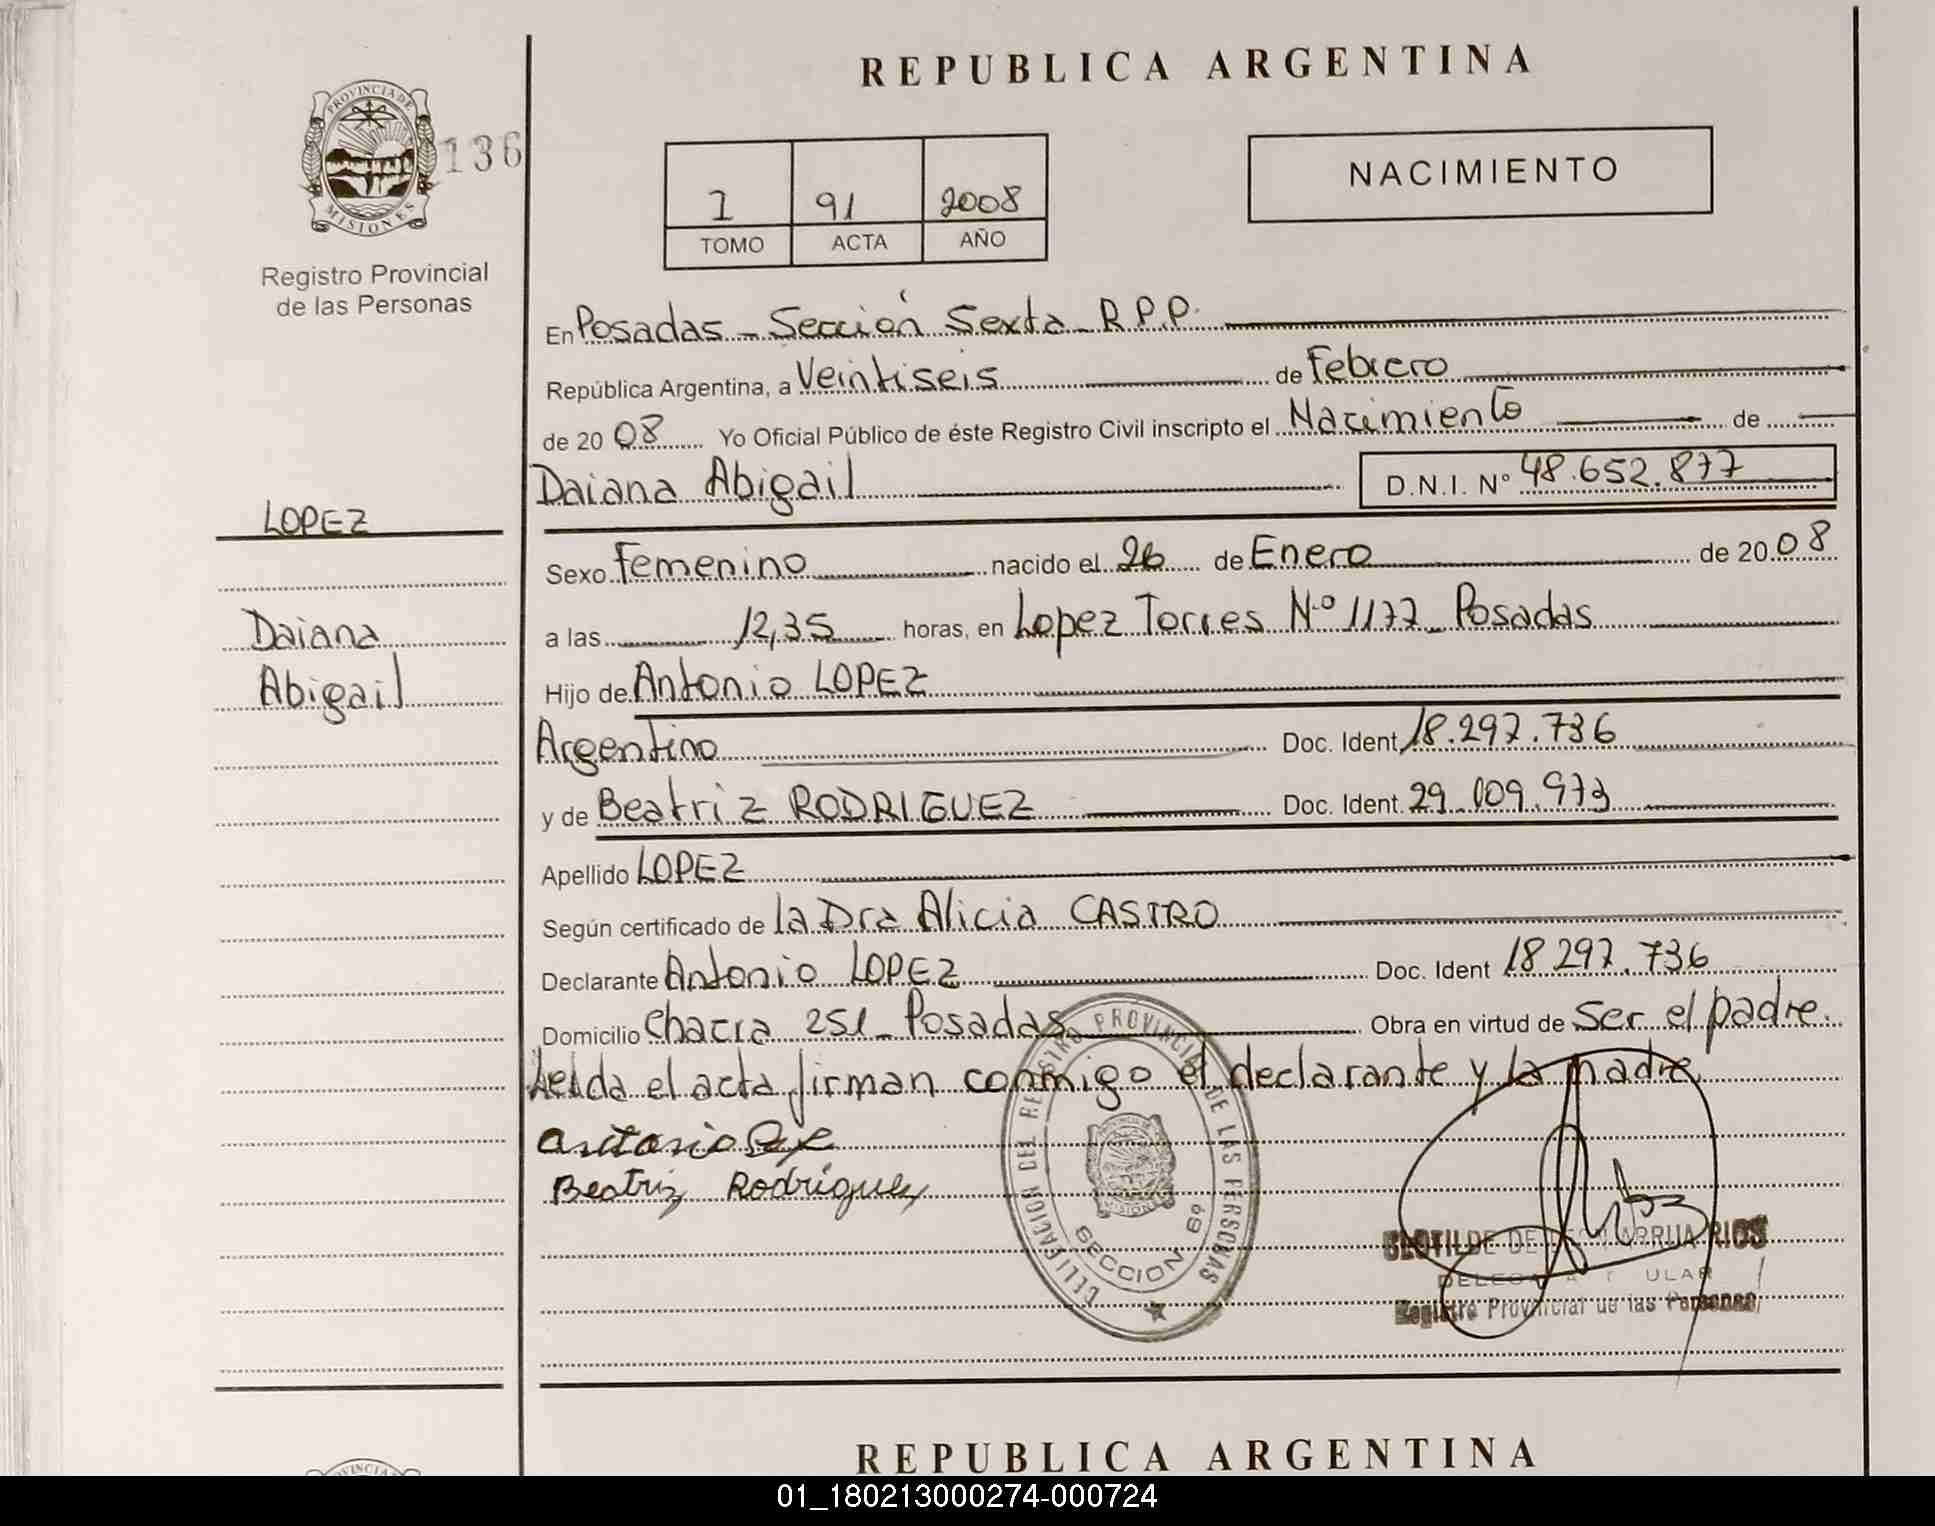 REPUBLICA ARGENTINA
PROVINCIA DE
MISIONES
136
Registro Provincial
de las Personas
1 91 2008
TOMO ACTA AÑO
NACIMIENTO
En Posadas - Sección Sexta - R.P.P.
República Argentina, a Veintiseis de Febrero
de 2008 Yo Oficial Público de éste Registro Civil inscripto el Nacimiento de
Daiana Abigail D.N.I. Nº 48.652.877
LOPEZ
Daiana
Abigail
Sexo Femenino nacido el 26 de Enero de 2008
a las 12,35 horas, en Lopez Torres Nº 1177 - Posadas
Hijo de Antonio LOPEZ
Argentino Doc. Ident. 18.297.736
y de Beatriz RODRIGUEZ Doc. Ident. 29.009.973
Apellido LOPEZ
Según certificado de la Dra Alicia CASTRO
Declarante Antonio LOPEZ Doc. Ident 18.297.736
Domicilio Chacra 251 - Posadas Obra en virtud de Ser el padre.
Leida el acta firman conmigo el declarante y la madre
Antonio
Beatriz Rodriguez
DEL REGISTRO PROVINCIAL DE LAS PERSONAS
MISIONES
SECCION 6º
CLOTILDE DE RIOS
Registro Provincial de las Personas
REPUBLICA ARGENTINA
01_180213000274-000724